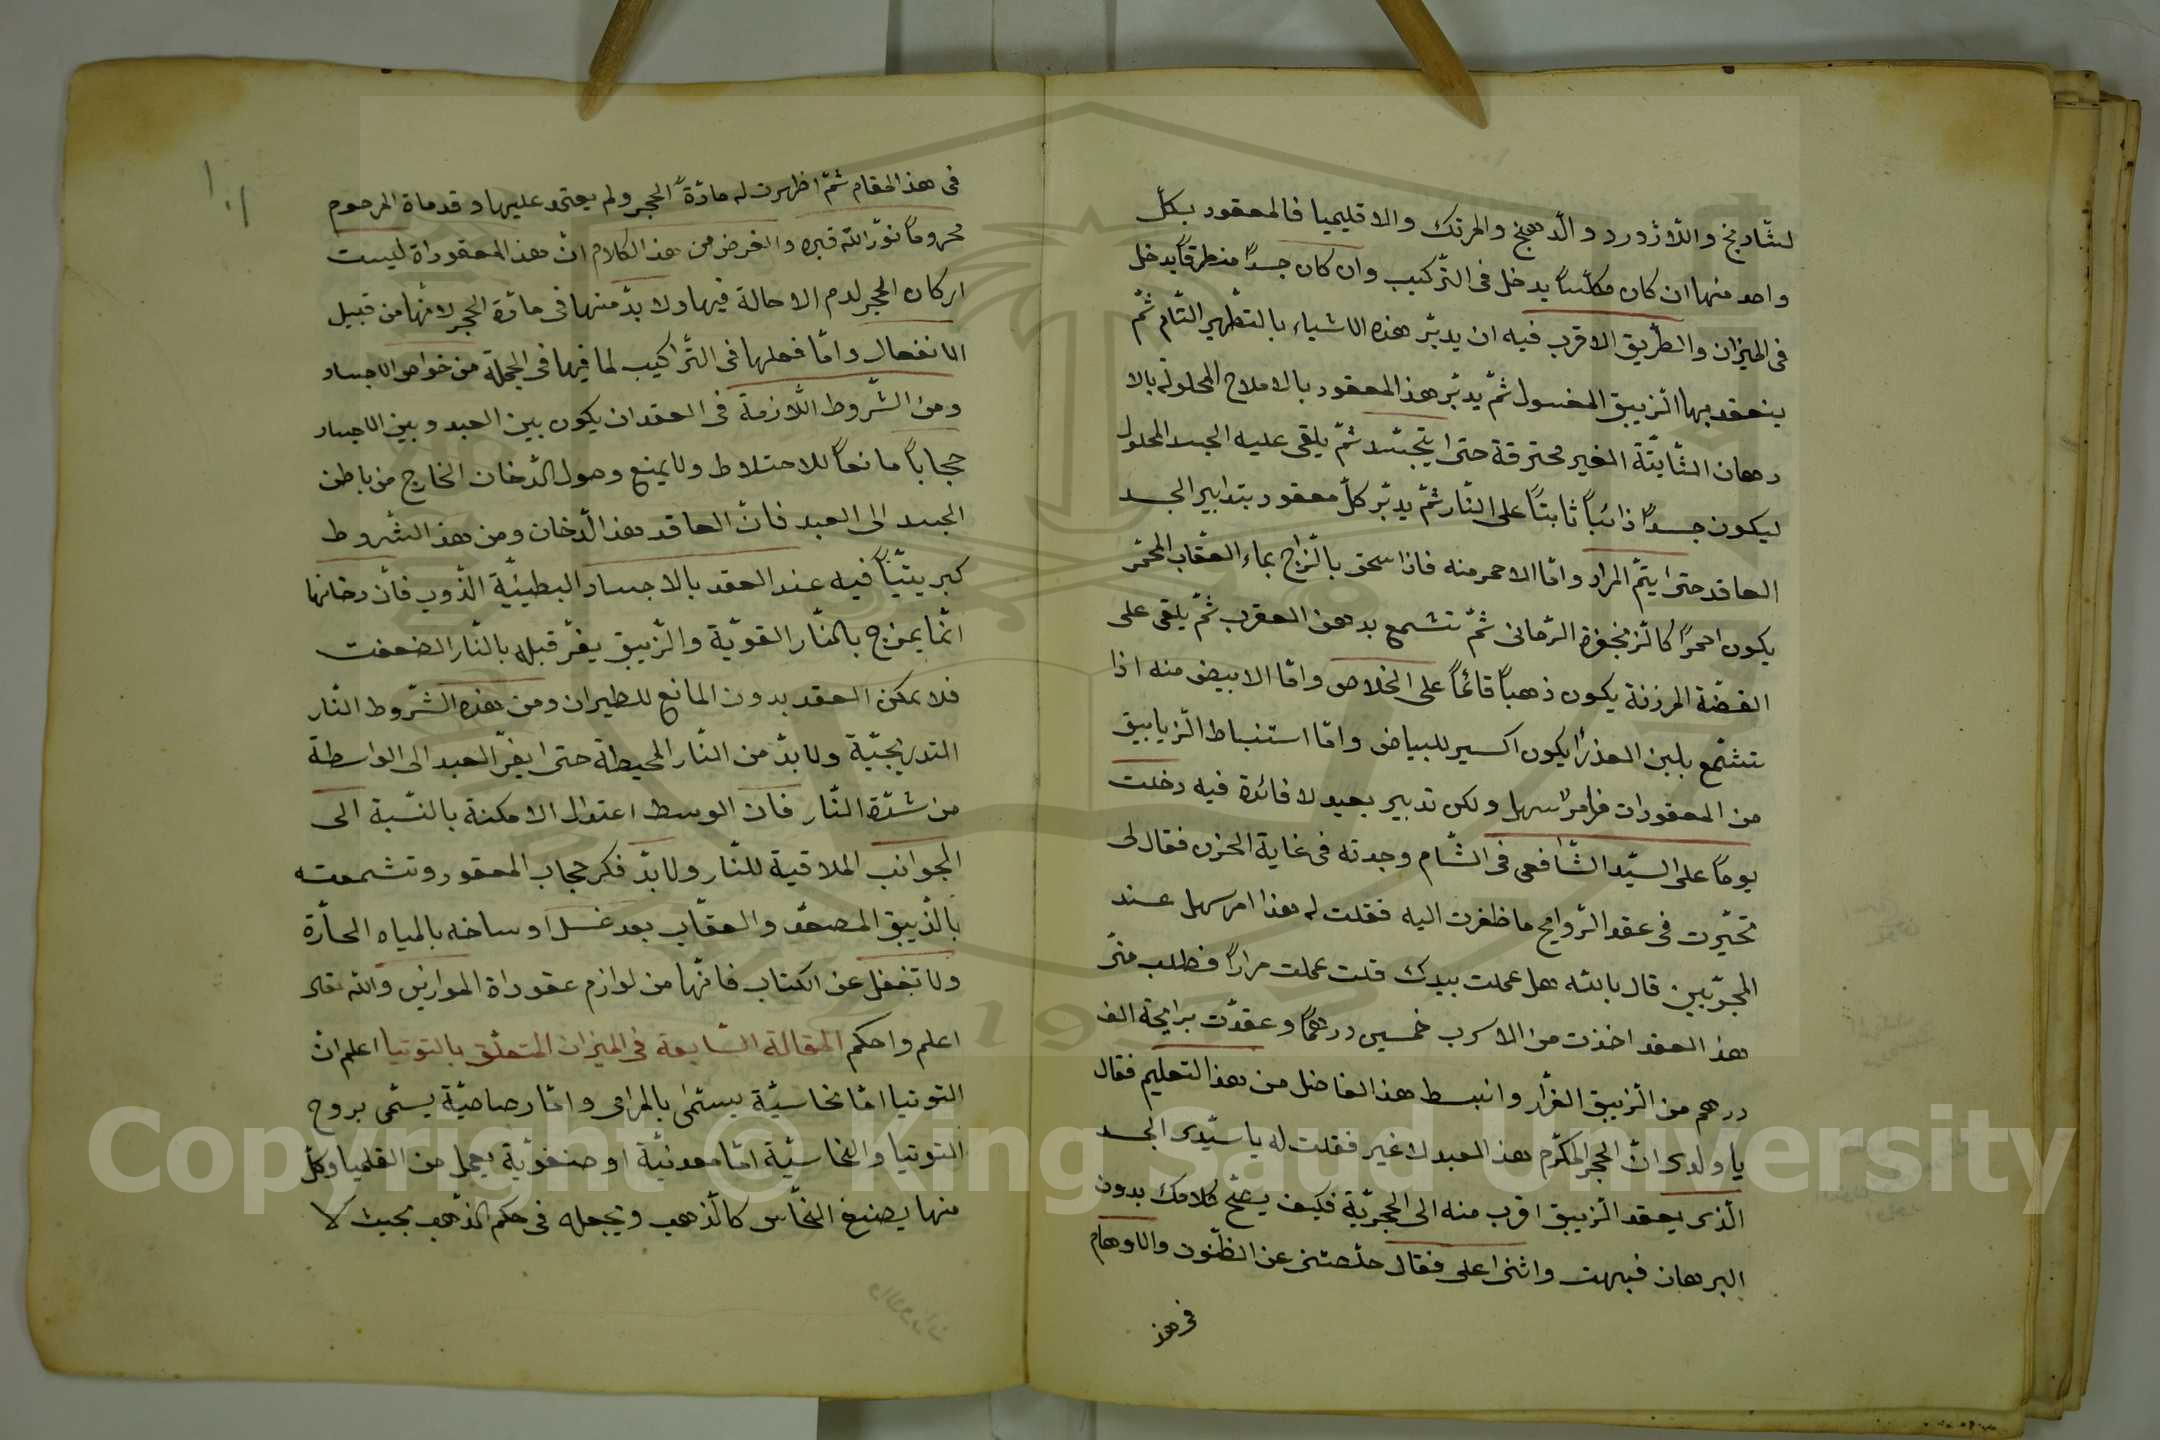 لشادنج واللاژورد والدهنج والمرتك والاقليميا فالمعقود بكل
واحد منها ان كان مكلسًا يدخل فى التركيب وان كان جسدًا منطرقًا يدخل
فى الميزان والطريق الاقرب فيه ان يدبّر هذه الاشياء بالتطهير التام ثمّ
ينعقد بها الزيبق المغسول ثمّ يدبّر هذ المعقود بالاملاح المحلولة بالا
دهان الثابتة الغير محترقة حتى يتجسد ثمّ يلقى عليه الجسد المحلول
ليكون جسدًا ذائبًا ثابتًا على النّار ثمّ يدبّر كلّ معقود بتدابير الجسد
العاقد حتى يتمّ المراد وامّا الاحمر منه فاذا سحق بالزاج بماء العقاب المحمّر
يكون احمرًا كالزنجفرة الرمانى ثمّ تتشمع بدهن العقرب ثمّ يلقى على
الفضّة المرزنة يكون ذهبًا قائمًا على الخلاص وامّا الابيض منه اذا
تتشمع بلبن العذرا يكون اكسير للبياض وامّا استنباط الزيابيق
من المعقودات فامر سهل ولكن تدبير بعيد لا فائدة فيه دخلت
يومًا على السيّد الشّافعى فى الشّام وجدته فى غاية الحزن فقال لى
تحيّرت فى عقد الروايح ما ظفرت اليه فقلت له هذا امر سهل عند
المجرّبين قال بالله هل عملت بيدك قلت عملت مرارًا فطلب منّى
هذ العقد اخذت من الاسرب خمسين درهمًا وعقدت برايحة الف
درهم من الزيبق الفرّار وانبسط هذ الفاضل من هذ التعليم فقال
يا ولدى انّ الحجر المكرّم هذ العبد لا غير فقلت له يا سيّدى الجسد
الّذى يعقد الزيبق اقرب منه الى الحجريّة فكيف يصحّ كلامك بدون
البرهان فبهت واثنى على فقال خلّصتنى عن الظنون والاوهام
فى هذ
فى هذ المقام ثمّ اظهرت له مادّة الحجر ولم يعتمد عليها وقد ماة المرحوم
محرومًا نوّر الله قبره والغرض من هذ الكلام انّ هذ المعقوداة ليست
اركان الحجر لدم الاحالة فيها ولا بدّ منها فى مادّة الحجر لانّها من قبيل
الانفعال وامّا فعلها فى التراكيب لما فيها فى الجملة من خواص الاجساد
ومن الشّروط اللّازمة فى العقد ان يكون بين العبد وبين الاجساد
حجابًا مانعًا للاختلاط ولا يمنع وصول الدخان الخارج من باطن
الجسد الى العبد فانّ العاقد هذ الدخان ومن هذ الشّروط
كبريتيًّا فيه عند العقد بالاجساد البطيئيّة الذوب فانّ دخانها
انّما يمزج بالنّار القويّة والزيبق يفرّ قبله بالنّار الضعفت
فلا يمكن العقد بدون المانع للطيران ومن هذه الشّروط النّار
التدريجيّة ولا بدّ من النّار المحيطة حتى يفرّ العبد الى الواسطة
من شدّة النّار فان الوسط اعتدل الامكنة بالنّسبة الى
الجوانب الملاقية للنّار ولا بدّ فكر حجاب المعقود وتشمعته
بالزيبق المصعّد والعقاب بعد غسل اوساخه بالمياه الحارّة
ولا تغفل عن الكتاب فانّها من لوازم عقوداة الموازين والله تعالى
اعلم واحكم المقالة السّابعة فى الميزان المتعلّق بالتوتيا اعلم انّ
التوتيا امّا نحاسيّة يسمّى بالمرامى وامّا رصاصيّة يسمّى بروح
التوتيا والنحاسيّة امّا معدنيّة او صنغويّة يعمل من القلميا وكلّ
منها يصنبغ النحّاس كالذهب ويجعله فى حكم الذهب بحيث لا
١٠١
Copyright © King Saud University
1957